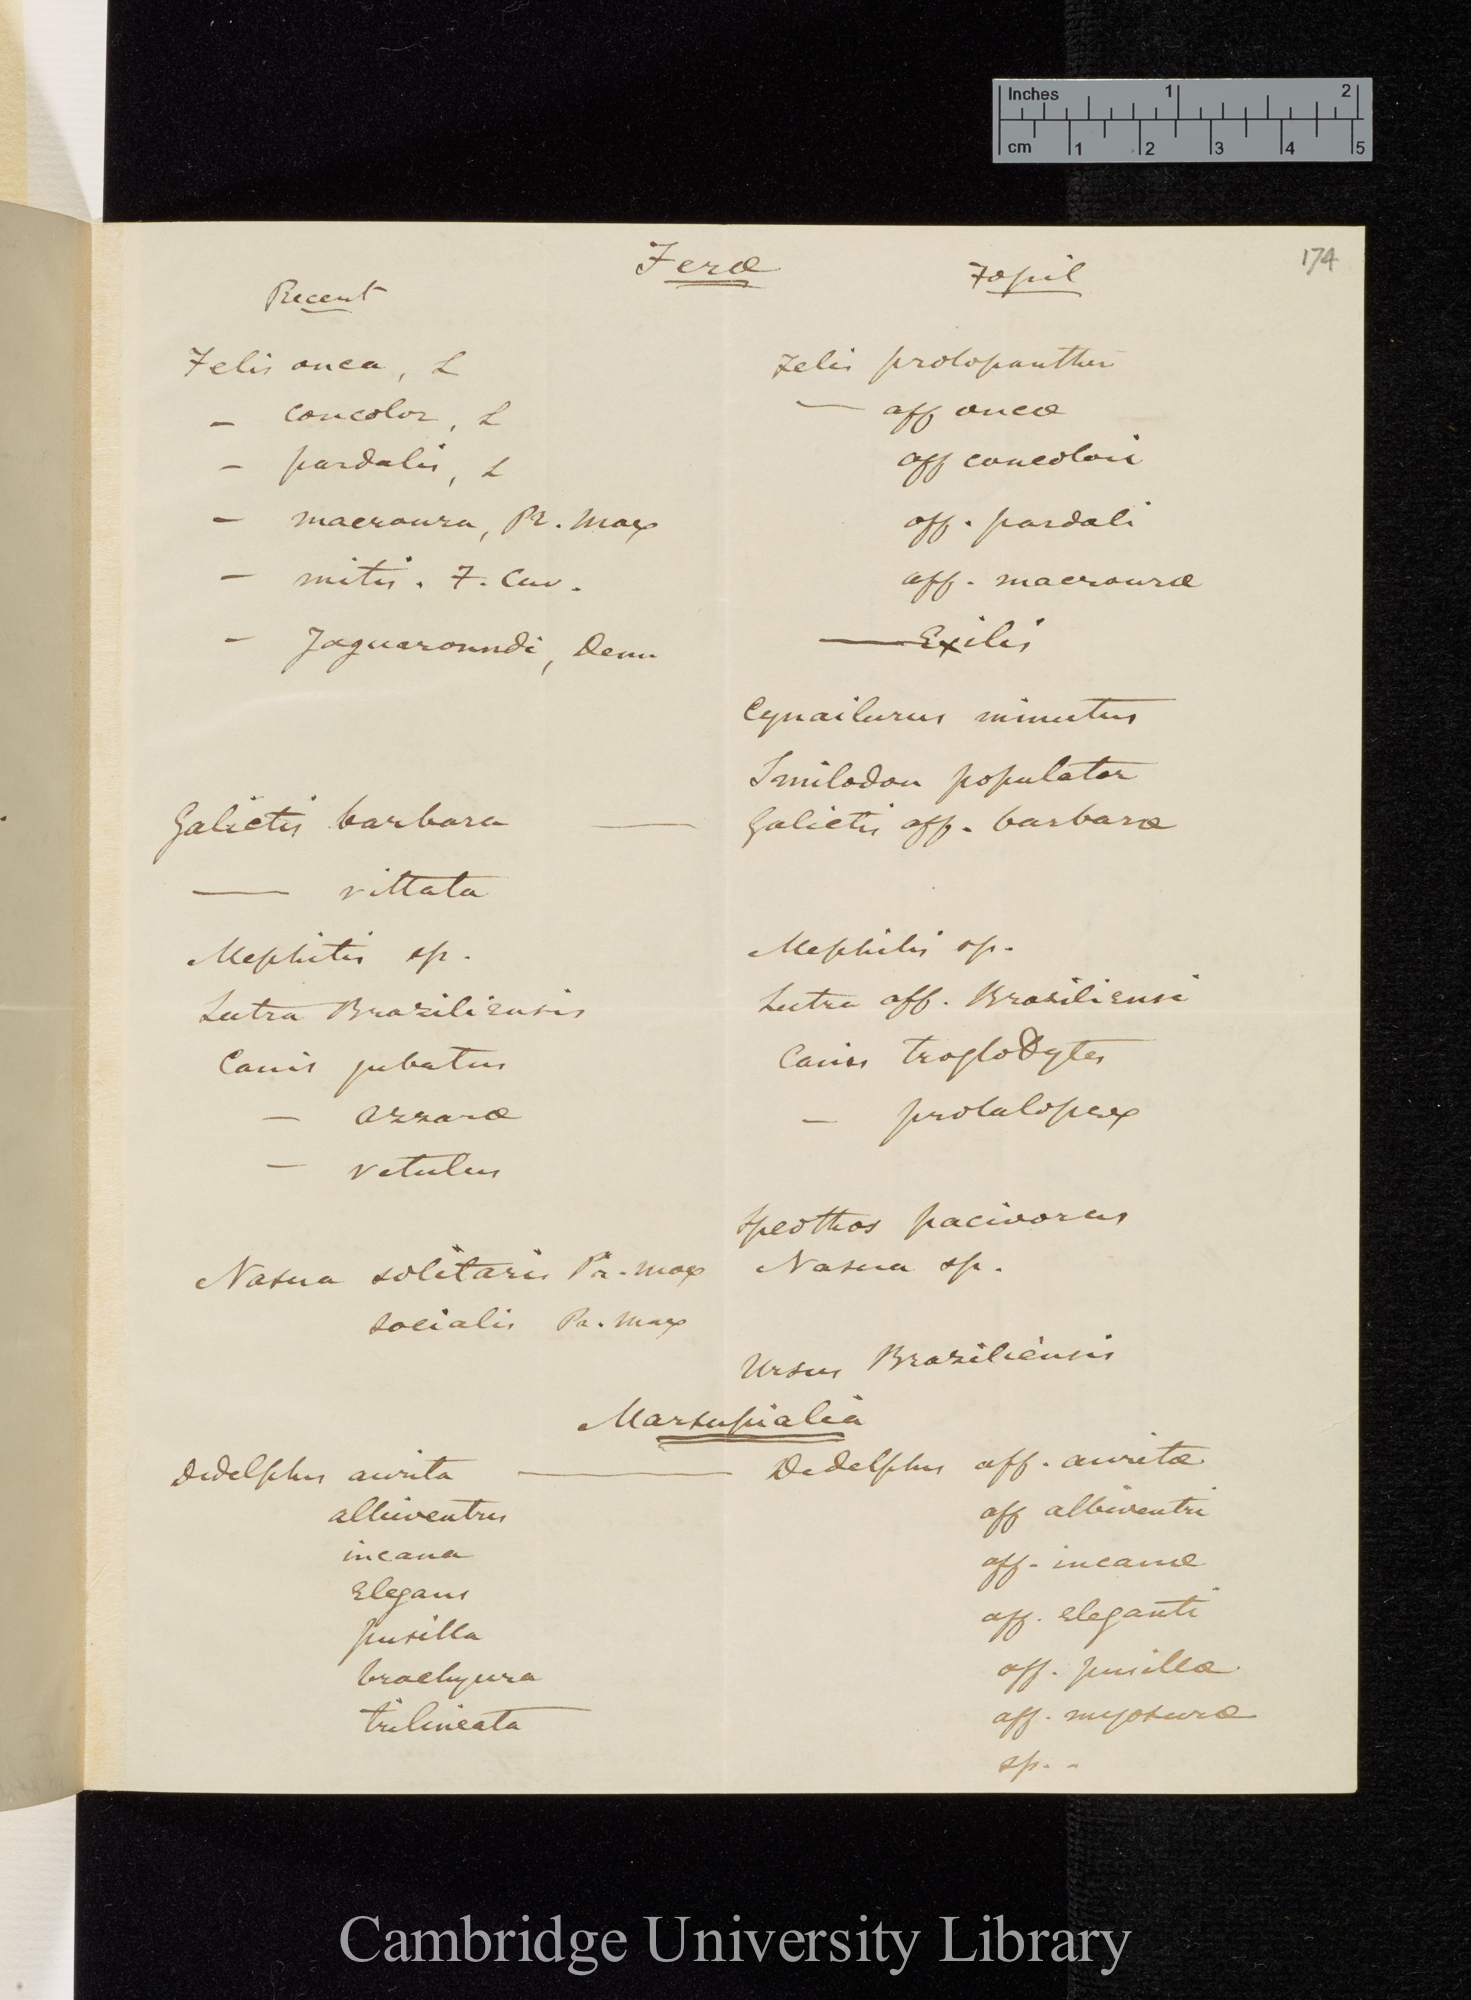 Inches 1 2
cm 1 2 3 4 5
174
Feræ
Recent Fossil
Felis onca, L Felis protopanther
– concolor, L — aff oncæ
– pardalis, L aff concolori
– macroura, Pr. Max aff. pardali
– mitis. F. Cuv. aff. macrouræ
– Jaguaroundi, Desm — Exilis
Cynailurus minutus
Smilodon populator
Galictis barbara — Galictis aff. barbaræ
— vittata
Mephitis sp. Mephitis sp.
Lutra Braziliensis Lutra aff. Brasiliensi
Canis jubatus Canis troglodytes
– azzaræ – protalopex
– vetulus
Speothos pacivorus
Nasua solitaris Pr. Max Nasua sp.
socialis Pr. Max
Ursus Braziliensis
Marsupialia
Didelphus aurita — Didelphus aff. auritæ
albiventris aff albiventri
incana aff. incanæ
Elegans aff. Eleganti
pusilla aff. pusillæ
brachyura aff. myosuræ
trilineata sp. -
Cambridge University Library